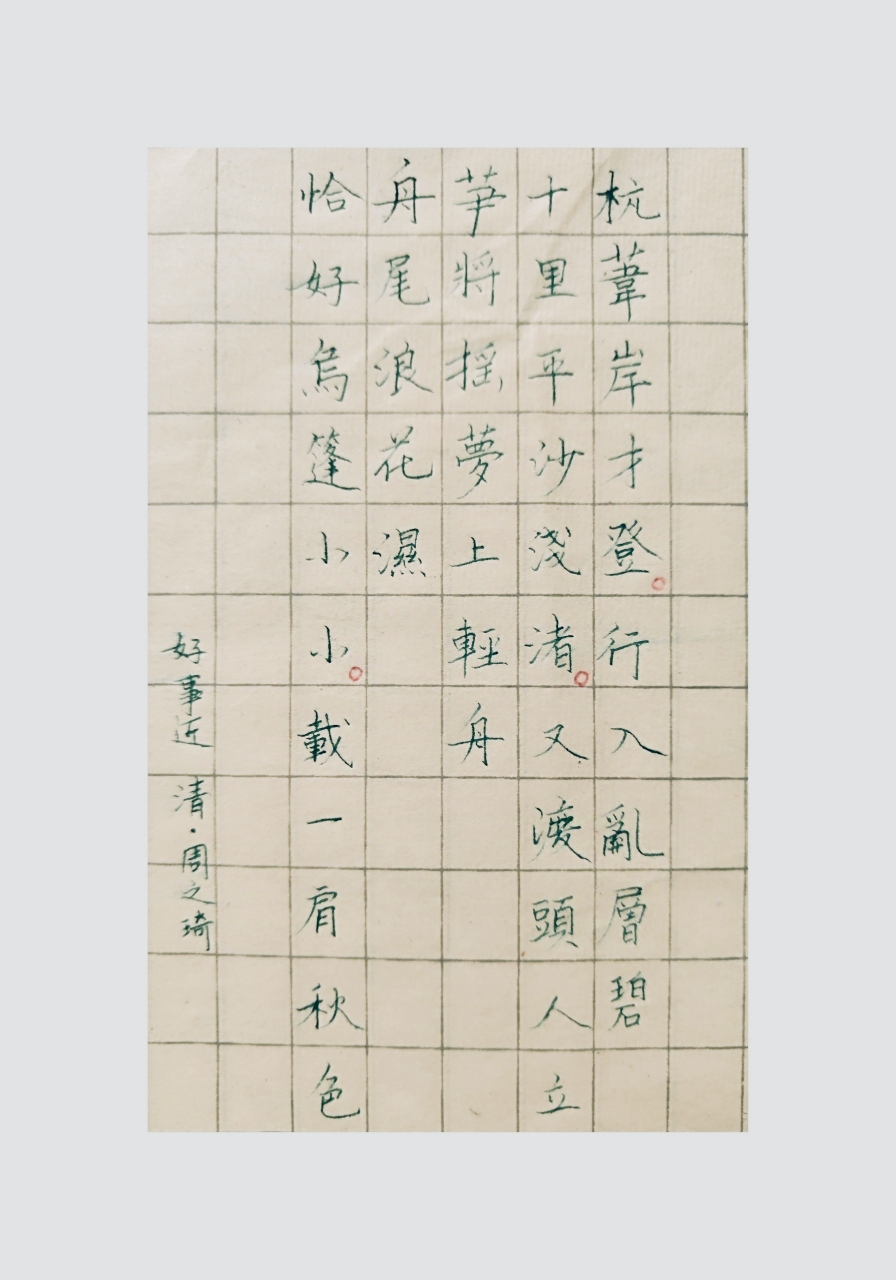 杭葦岸才登。行入亂層碧
十里平沙淺渚。又渡頭人立
筆將摇夢上輕舟
舟尾浪花濕
恰好烏篷小小。載一肩秋色
好事近 清·周之琦